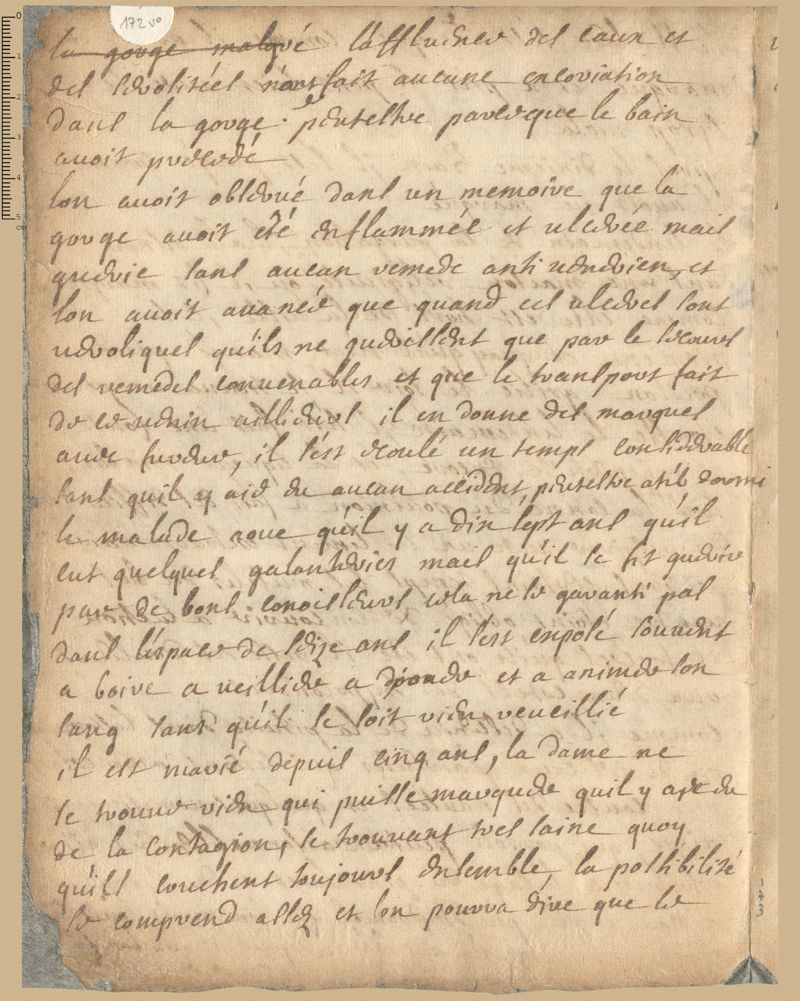 172 vo
la gorge malgré l'affluence des eaux et
des serositeés n'ont fait aucune excoriation
dans la gorge. peutestre parceque le bain
avoit precedé
lon avoit observé dans un memoire que la
gorge avoit été enflammée et ulcerée mais
guerie sans aucun remede anti venerien, et
lon avoit avancé que quand ces ulceres sont
veroliques qu'ils ne guerissent que par le secours
des remedes convenables et que le transport fait
de ce venin aillieurs il en donne des marques
avec fureur, il s'est ecoulé un temps considerable
sans quil y aie eu aucun accident, peutestre at'il dormi
le malade avue qu'il y a dix sept ans qu'il
eut quelques galanteries mais qu'il se fit guerire
par de bons conoisseurs cela ne le garanti pas
dans l'espace de seize ans il s'est exposé souvent
a boire a veillier a et a animer son
sang sans qu'il se soit rien reveillié
il est marié depuis cinq ans, la dame ne
se trouve rien qui puisse marquer quil y aye eu
de la contagion, se trouvant tres saine quoy
qu'ills couchent toujours ensemble, la possibilité
se comprend assez et lon pourra dire que le